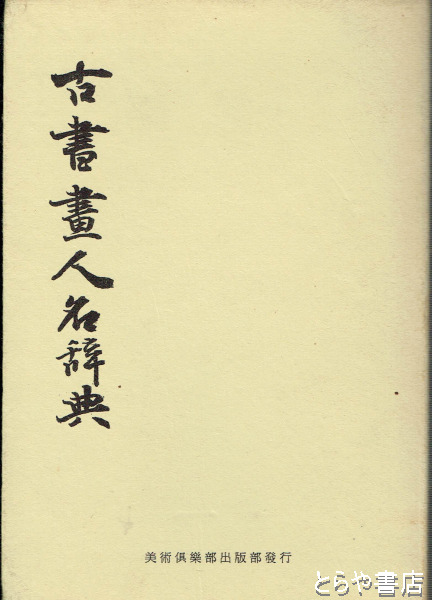 古書畫人名辞典
美術倶樂部出版部發行
とらや書店